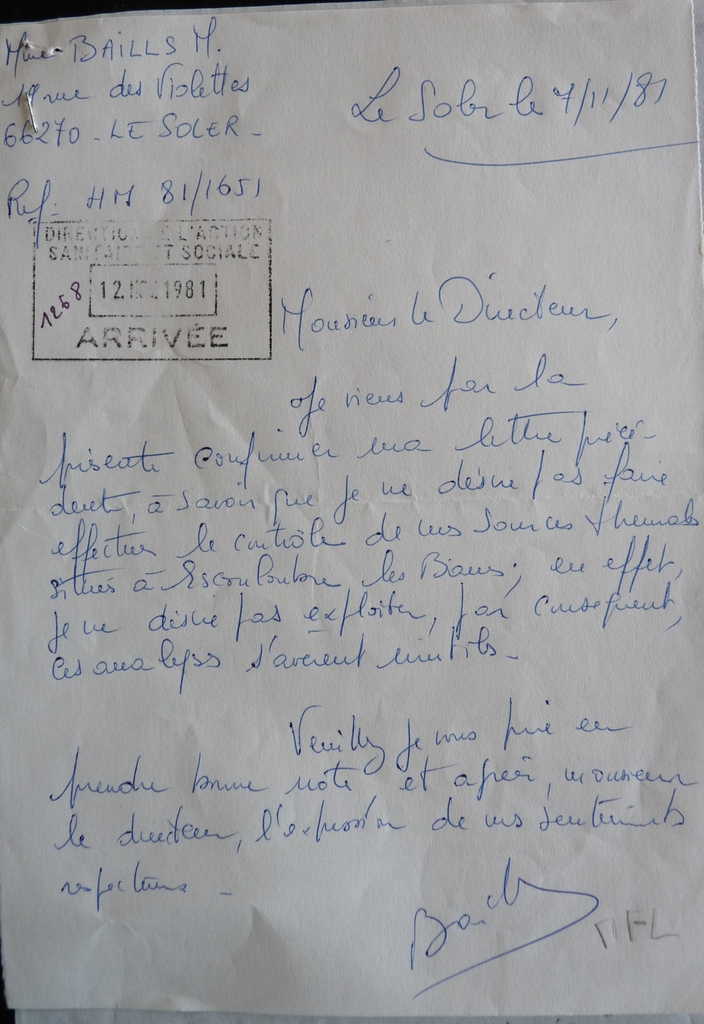 Mme BAILLS M.
19 rue des Violettes
66270 - LE SOLER -
Le Soler le 7/11/81
Ref: HM 81/1651
DIRECTION DE L'ACTION
SANITAIRE ET SOCIALE
1268
12 NOV 1981
ARRIVÉE
Monsieur le Directeur,
Je viens par la
présente confirmer ma lettre précé-
dente, à savoir que je ne désire pas faire
effectuer le contrôle de mes sources thermales
situés à Escouloubre les Bains; en effet,
je ne désire pas exploiter, par conséquent,
ces analyses s'avèrent inutiles -
Veuillez je vous prie en
prendre bonne note et agréer, monsieur
le directeur, l'expression de mes sentiments
respectueux -
Baills